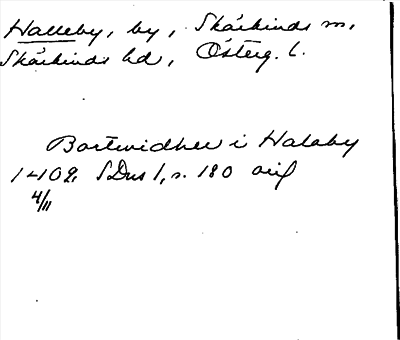 Halleby, by, Skärkinds sn,
Skärkinds hd, Österg. l.
Bortwidher i Halaby
1402, SDns 1, s. 180 orig
4/11